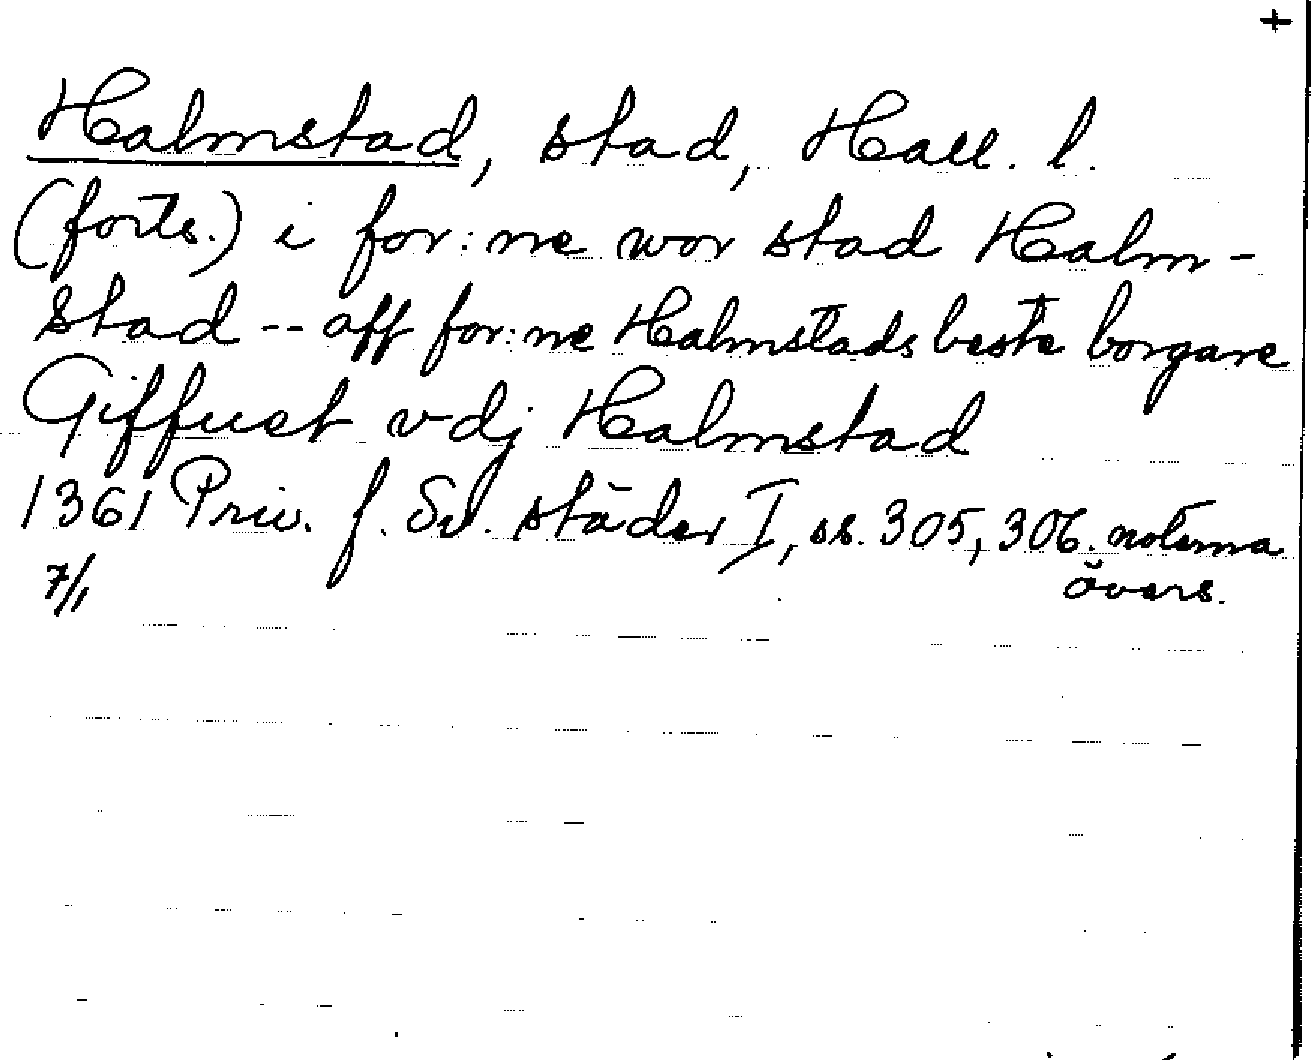 +
Halmstad, stad, Hall. l.
(forts.) i for:ne wor stad Halm-
stad -- aff for:ne Halmstads beste borgare
Giffuet vdj Halmstad
1361 Priv. f. Sv. städer I, ss. 305, 306. noterna
7/1 övers.